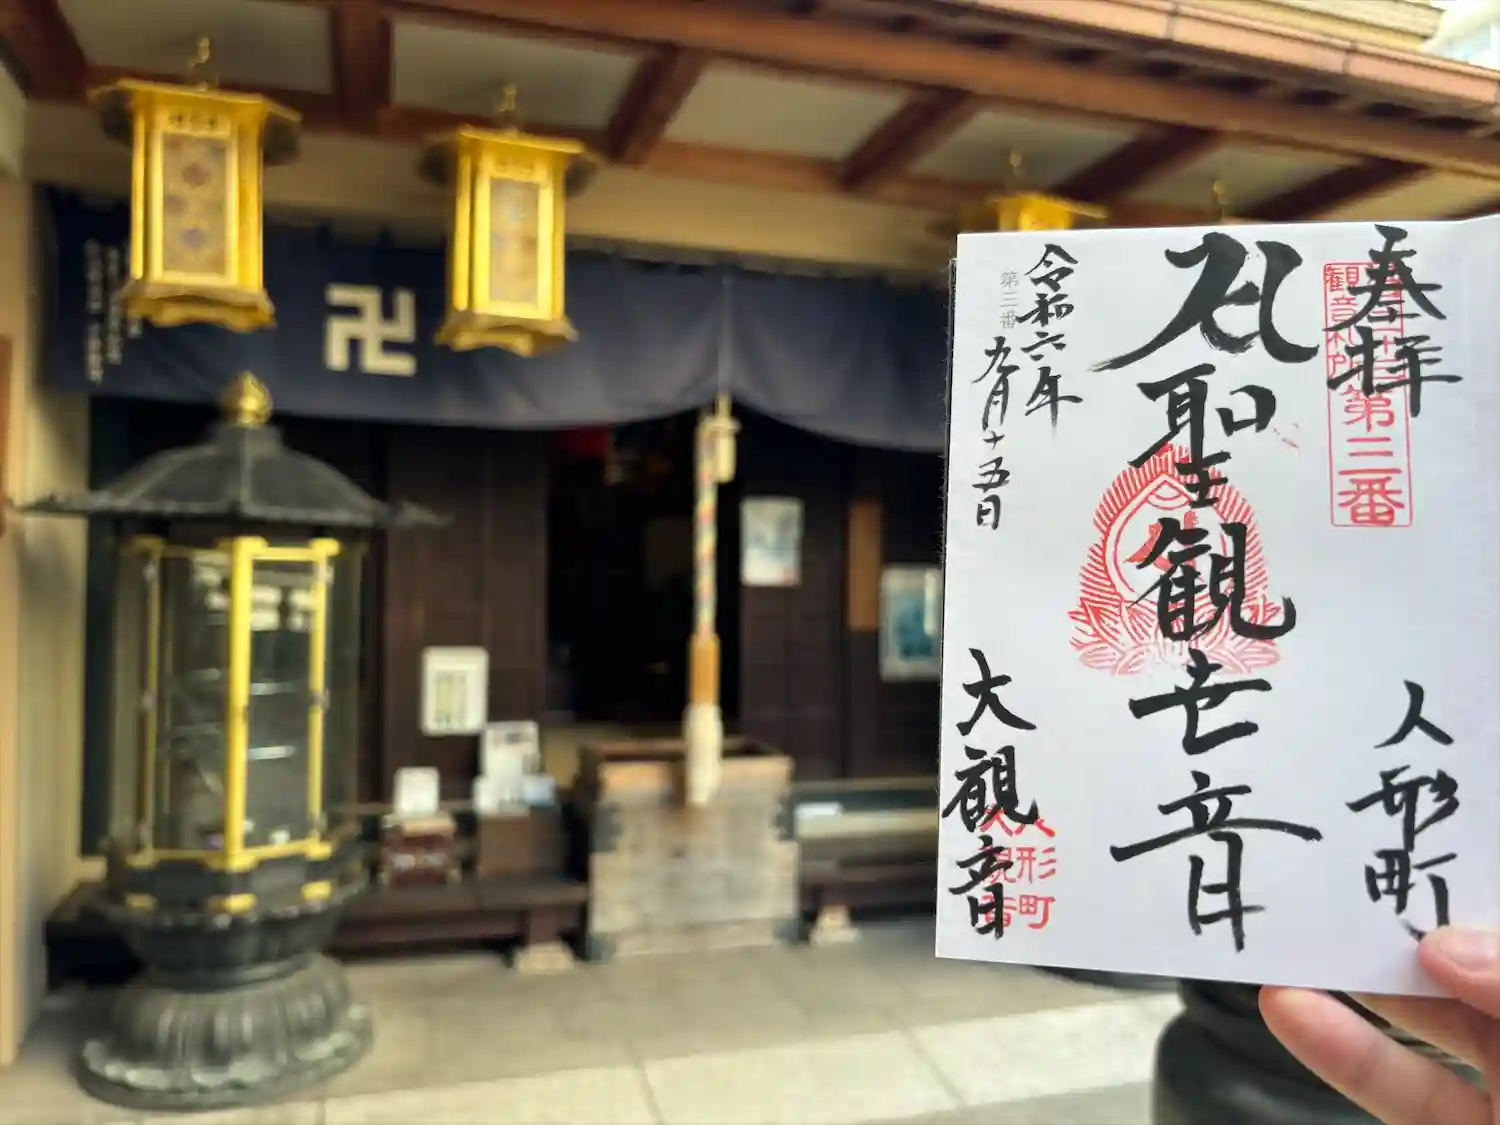 奉拝
観音札所第三番
聖観世音
人形町
第三番
令和六年
九月十五日
大観音
人形町
大観音
卍